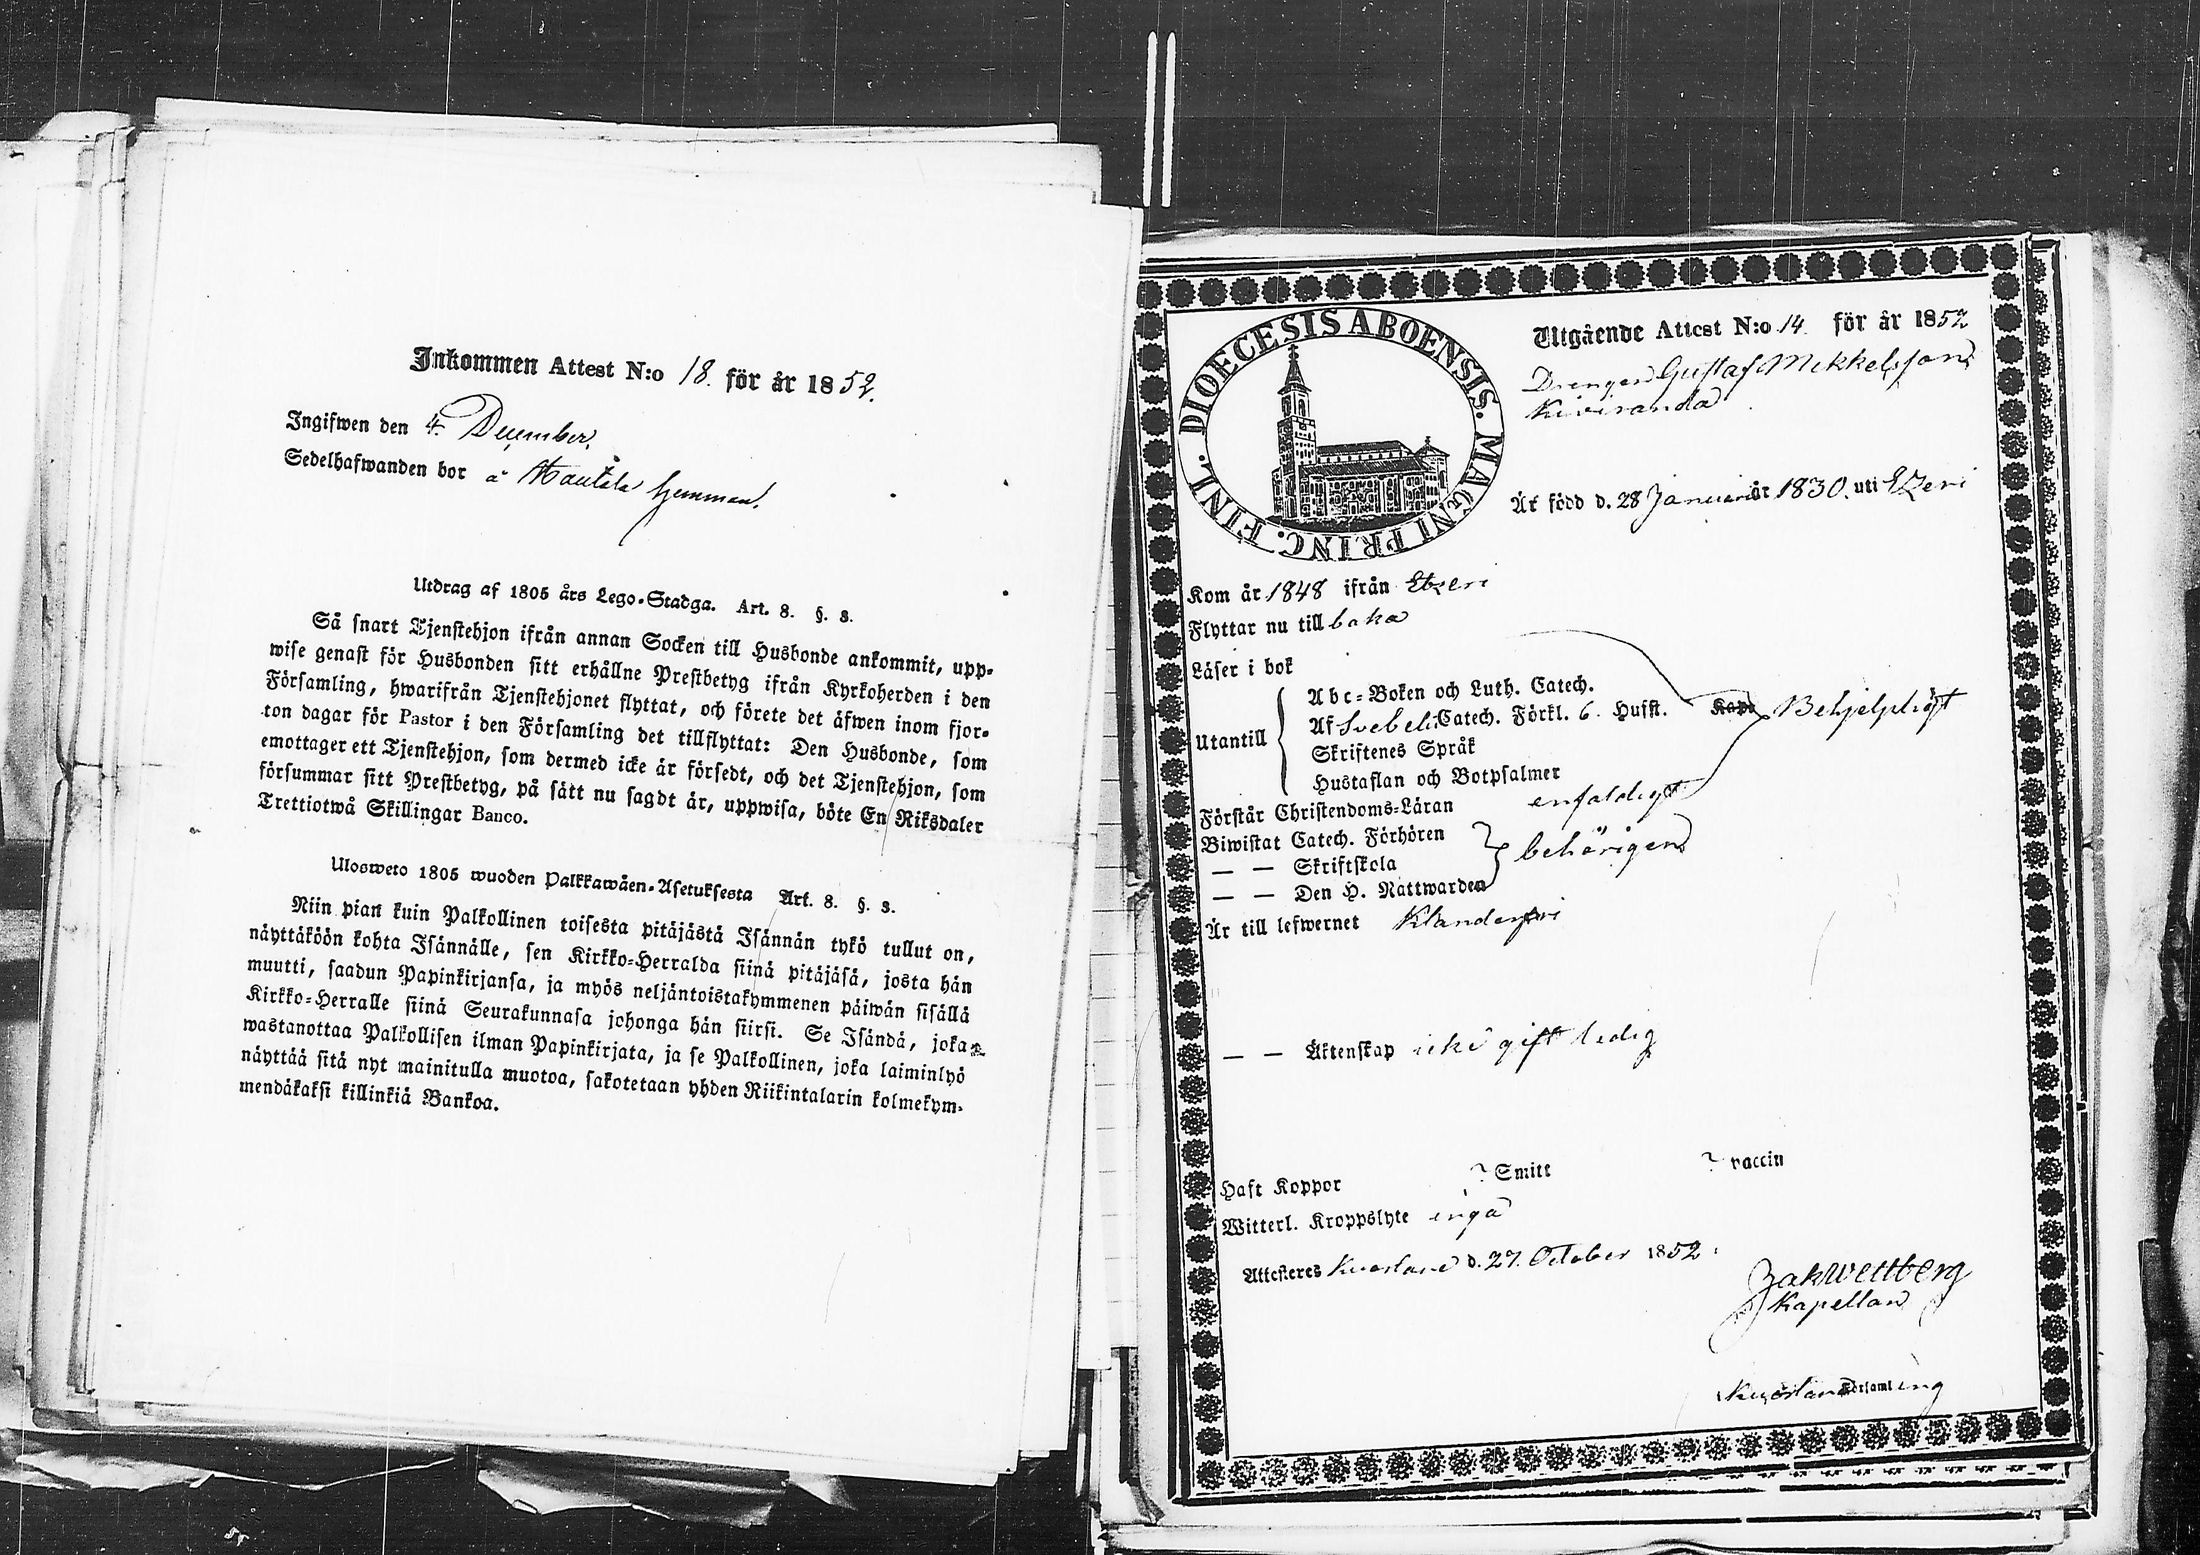 Inkommen Attest N:o 18. för år 1852.
Ingifwen den 4. December.
Sedelhafwanden bor å Hautala hemman.
Utdrag af 1805 års Lego-Stadga. Art. 8. §. 3.
Så snart Tjenstehjon ifrån annan Socken till Husbonde ankommit, upp-
wise genast för Husbonden sitt erhållne Prestbetyg ifrån Kyrkoherden i den
Församling, hwarifrån Tjenstehjonet flyttat, och förete det äfwen inom fjor-
ton dagar för Pastor i den Församling det tillflyttat: Den Husbonde, som
emottager ett Tjenstehjon, som dermed icke är försedt, och det Tjenstehjon, som
försummar sitt Prestbetyg, på sätt nu sagdt är, uppwisa, böte En Riksdaler
Trettiotwå Skillingar Banco.
Ulosweto 1805 wuoden Palkkawäen-Asetuksesta Art. 8. §. 3.
Niin pian kuin Palkollinen toisesta pitäjästä Isännän tykö tullut on,
näyttäköön kohta Isännälle, sen Kirkko-Herralda siinä pitäjäsä, josta hän
muutti, saadun Papinkirjansa, ja myös neljäntoistakymmenen päiwän sisällä
Kirkko-Herralle siinä Seurakunnasa johonga hän siirsi. Se Isändä, joka
wastanottaa Palkollisen ilman Papinkirjata, ja se Palkollinen, joka laiminlyö
näyttää sitä nyt mainitulla muotoa, sakotetaan yhden Riikintalarin kolmekym-
mendäkaksi killinkiä Bankoa.
DIOECESIS ABOENSIS. MAGNI PRINC. FINL.
Utgående Attest N:o 14. för år 1852
Drengen Gustaf Mikkelsson
Kiviranda
Är född d. 28 Januari år 1830. uti Etzeri
Kom år 1848 ifrån Etzeri
Flyttar nu till baka
Läser i bok
Utantill
Abc-Boken och Luth. Catech.
Af Svebeli Catech. Förkl. 6. Hufst. Behjelpligt
Skriftenes Språk
Hustaflan och Botpsalmer
Förstår Christendoms-Läran enfaldigt
Biwistat Catech. Förhören
— — Skriftskola behörigen
— — Den H. Nattwarden
Är till lefwernet Klanderfri
— — Äktenskap icke gift ledig
Haft Koppor ? Smitt ? vaccin
Witterl. Kroppslyte inga
Attesteras Kuorlane d. 27. October 1852.
Zak Wettberg
Kapellan
Församling